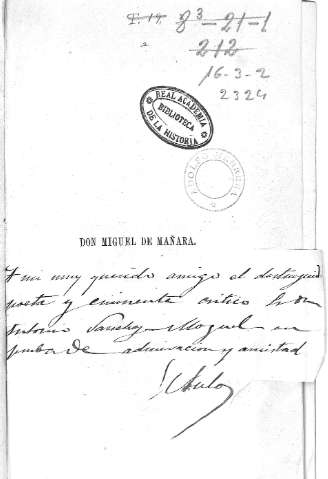 T. 14. 8³-21-1
212
16-3-2
2324
REAL ACADEMIA
BIBLIOTECA
DE LA HISTORIA
DON MIGUEL DE MAÑARA.
A mi muy querido amigo el distinguido
poeta y eminente critico Sr. Dn
Antonio Sanchez Moguel en
prueba de admiracion y amistad